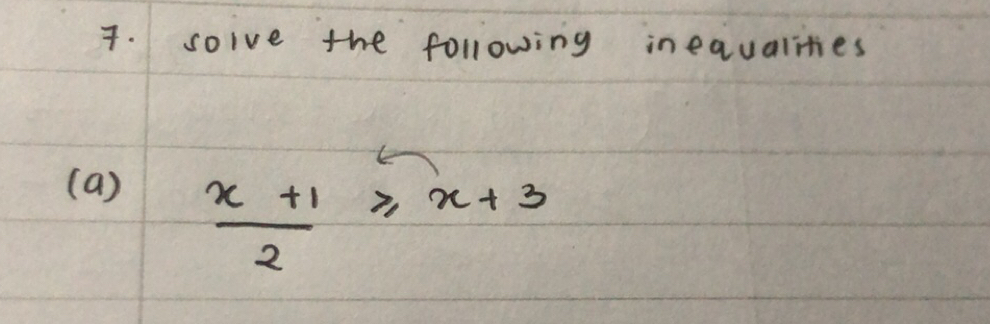 7. solve the following inequalities
(a) x +1 ⩾ x + 3
2